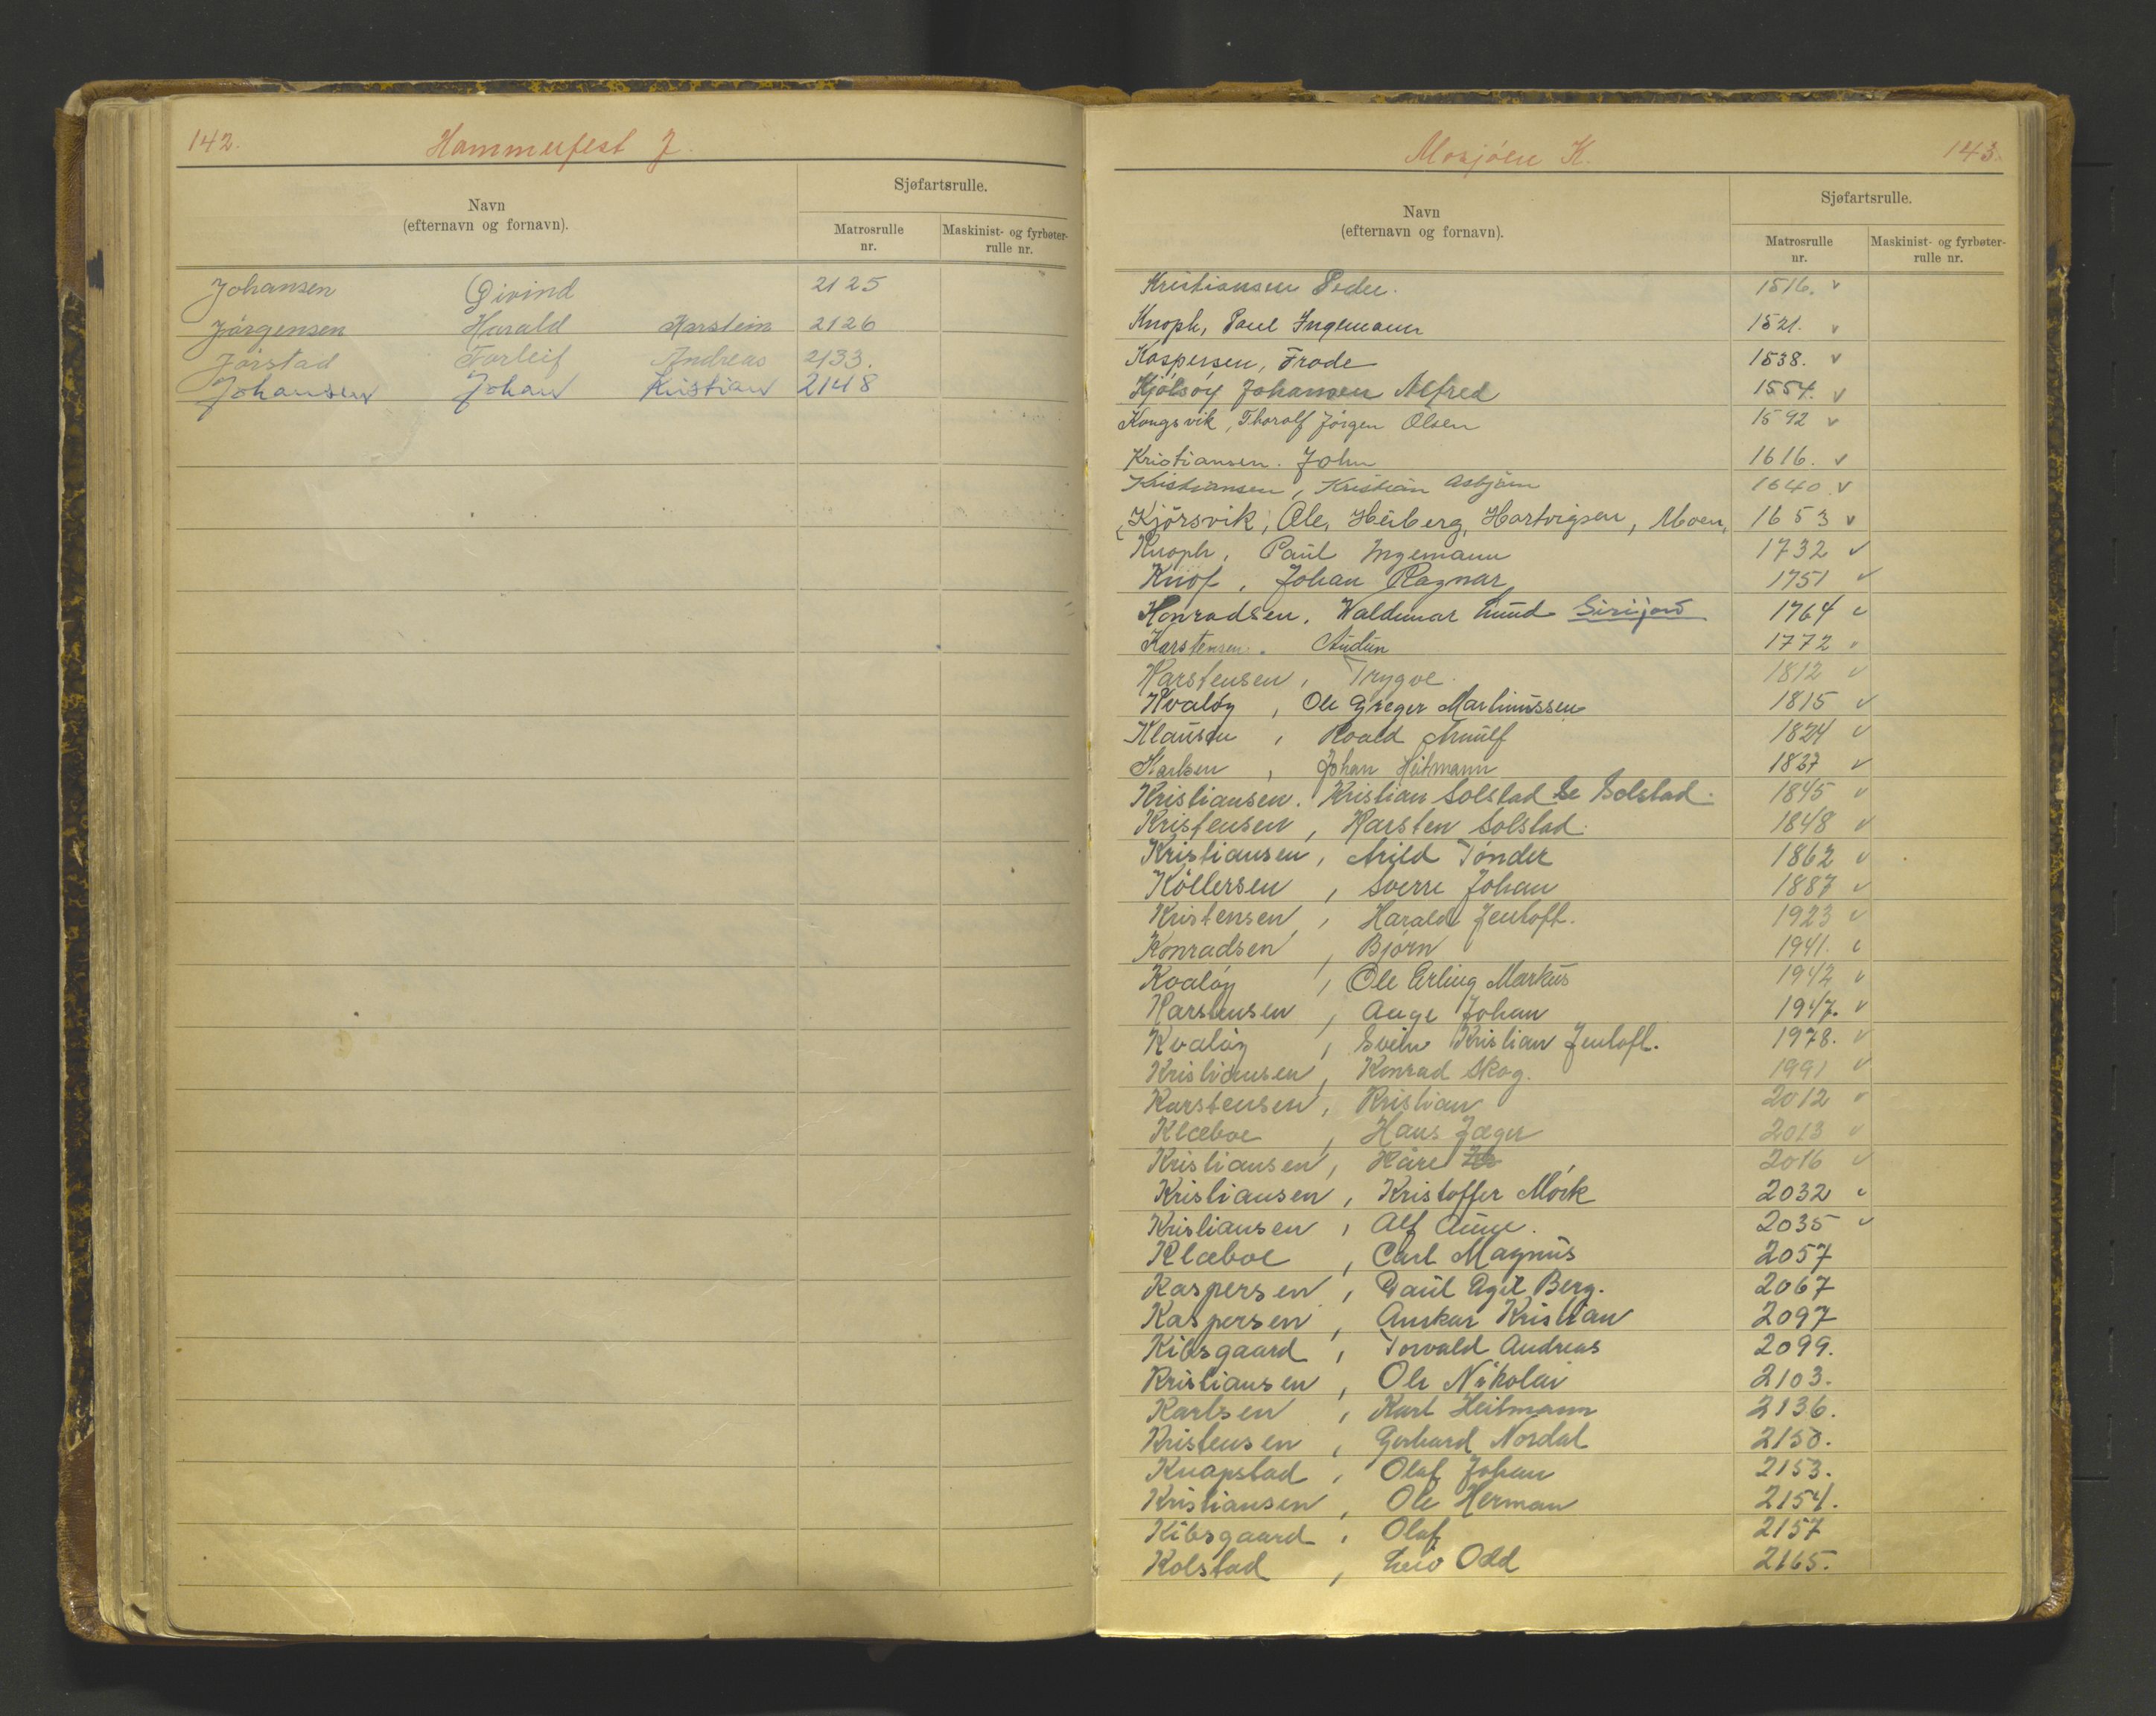 142.
Hammerfest J.
Navn
(efternavn og fornavn).
Sjøfartsrulle.
Matrosrulle
nr.
Maskinist- og fyrbøter-
rulle nr.
Johansen Øivind 2125
Jörgensen Harald Karstein 2126
Jörstad Torleif Andreas 2133.
Johansen Johan Kristian 2148
Mosjöen K.
143.
Navn
(efternavn og fornavn).
Sjøfartsrulle.
Matrosrulle
nr.
Maskinist- og fyrbøter-
rulle nr.
Kristiansen Peder. 1516. v
Knoph, Paul Ingemann 1521. v
Kaspersen, Frode 1538. v
Kjölsöy Johansen Alfred 1554. v
Kongsvik, Thoralf Jörgen Olsen 1592 v
Kristiansen. John 1616. v
Kristiansen, Kristian Asbjörn 1640 v
Kjörsvik, Ole, Heiberg, Hartvigsen, Moen, 1653 v
Knoph, Paul Ingemann 1732 v
Knof, Johan Ragnar 1751 v
Konradsen, Waldemar Lund 1764 v
Karstensen. Audun 1772 v
Karstensen, Trygve. 1812 v
Kvalöy, Ole Greger Martinussen 1815 v
Klausen, Roald Arnulf 1824 v
Karlsen, Johan Heitmann 1837 v
Kristiansen. Kristian Solstad Se Solstad. 1845 v
Kristensen, Karsten Solstad. 1848 v
Kristiansen, Arild Tönder 1862 v
Köllersen, Sverre Johan 1887 v
Kristensen, Harald Jentoft. 1923 v
Konradsen, Björn 1941. v
Kvalöy, Ole Erling Markus 1942 v
Karstensen, Aage Johan 1947. v
Kvalöy, Svein Kristian Jentoft. 1978. v
Kristiansen, Konrad Skog. 1991 v
Karstensen, Kristian 2012 v
Klæboe, Hans Jæger 2013 v
Kristiansen, Kåre 2016 v
Kristiansen, Kristoffer Mörk 2032 v
Kristiansen, Alf Aune. 2035 v
Klæboe, Carl Magnus 2057
Kaspersen, Paul Egil Berg. 2067
Kaspersen, Anskar Kristian 2097
Kibsgaard, Torvald Andreas 2099.
Kristiansen, Ole Nikolai 2103.
Karlsen, Karl Heitmann 2136.
Kristensen, Gerhard Nordal 2150.
Knapstad, Olaf Johan 2153.
Kristiansen, Ole Herman 2154.
Kibsgaard, Olaf 2157
Kolstad, Leiv Odd 2165.